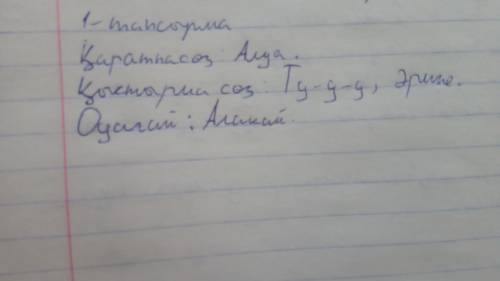 1-тапсырма
Қаратпасөз Алда.
Қыстырма сөз: Ту-у-у, әрине.
Одағай: Алакай.